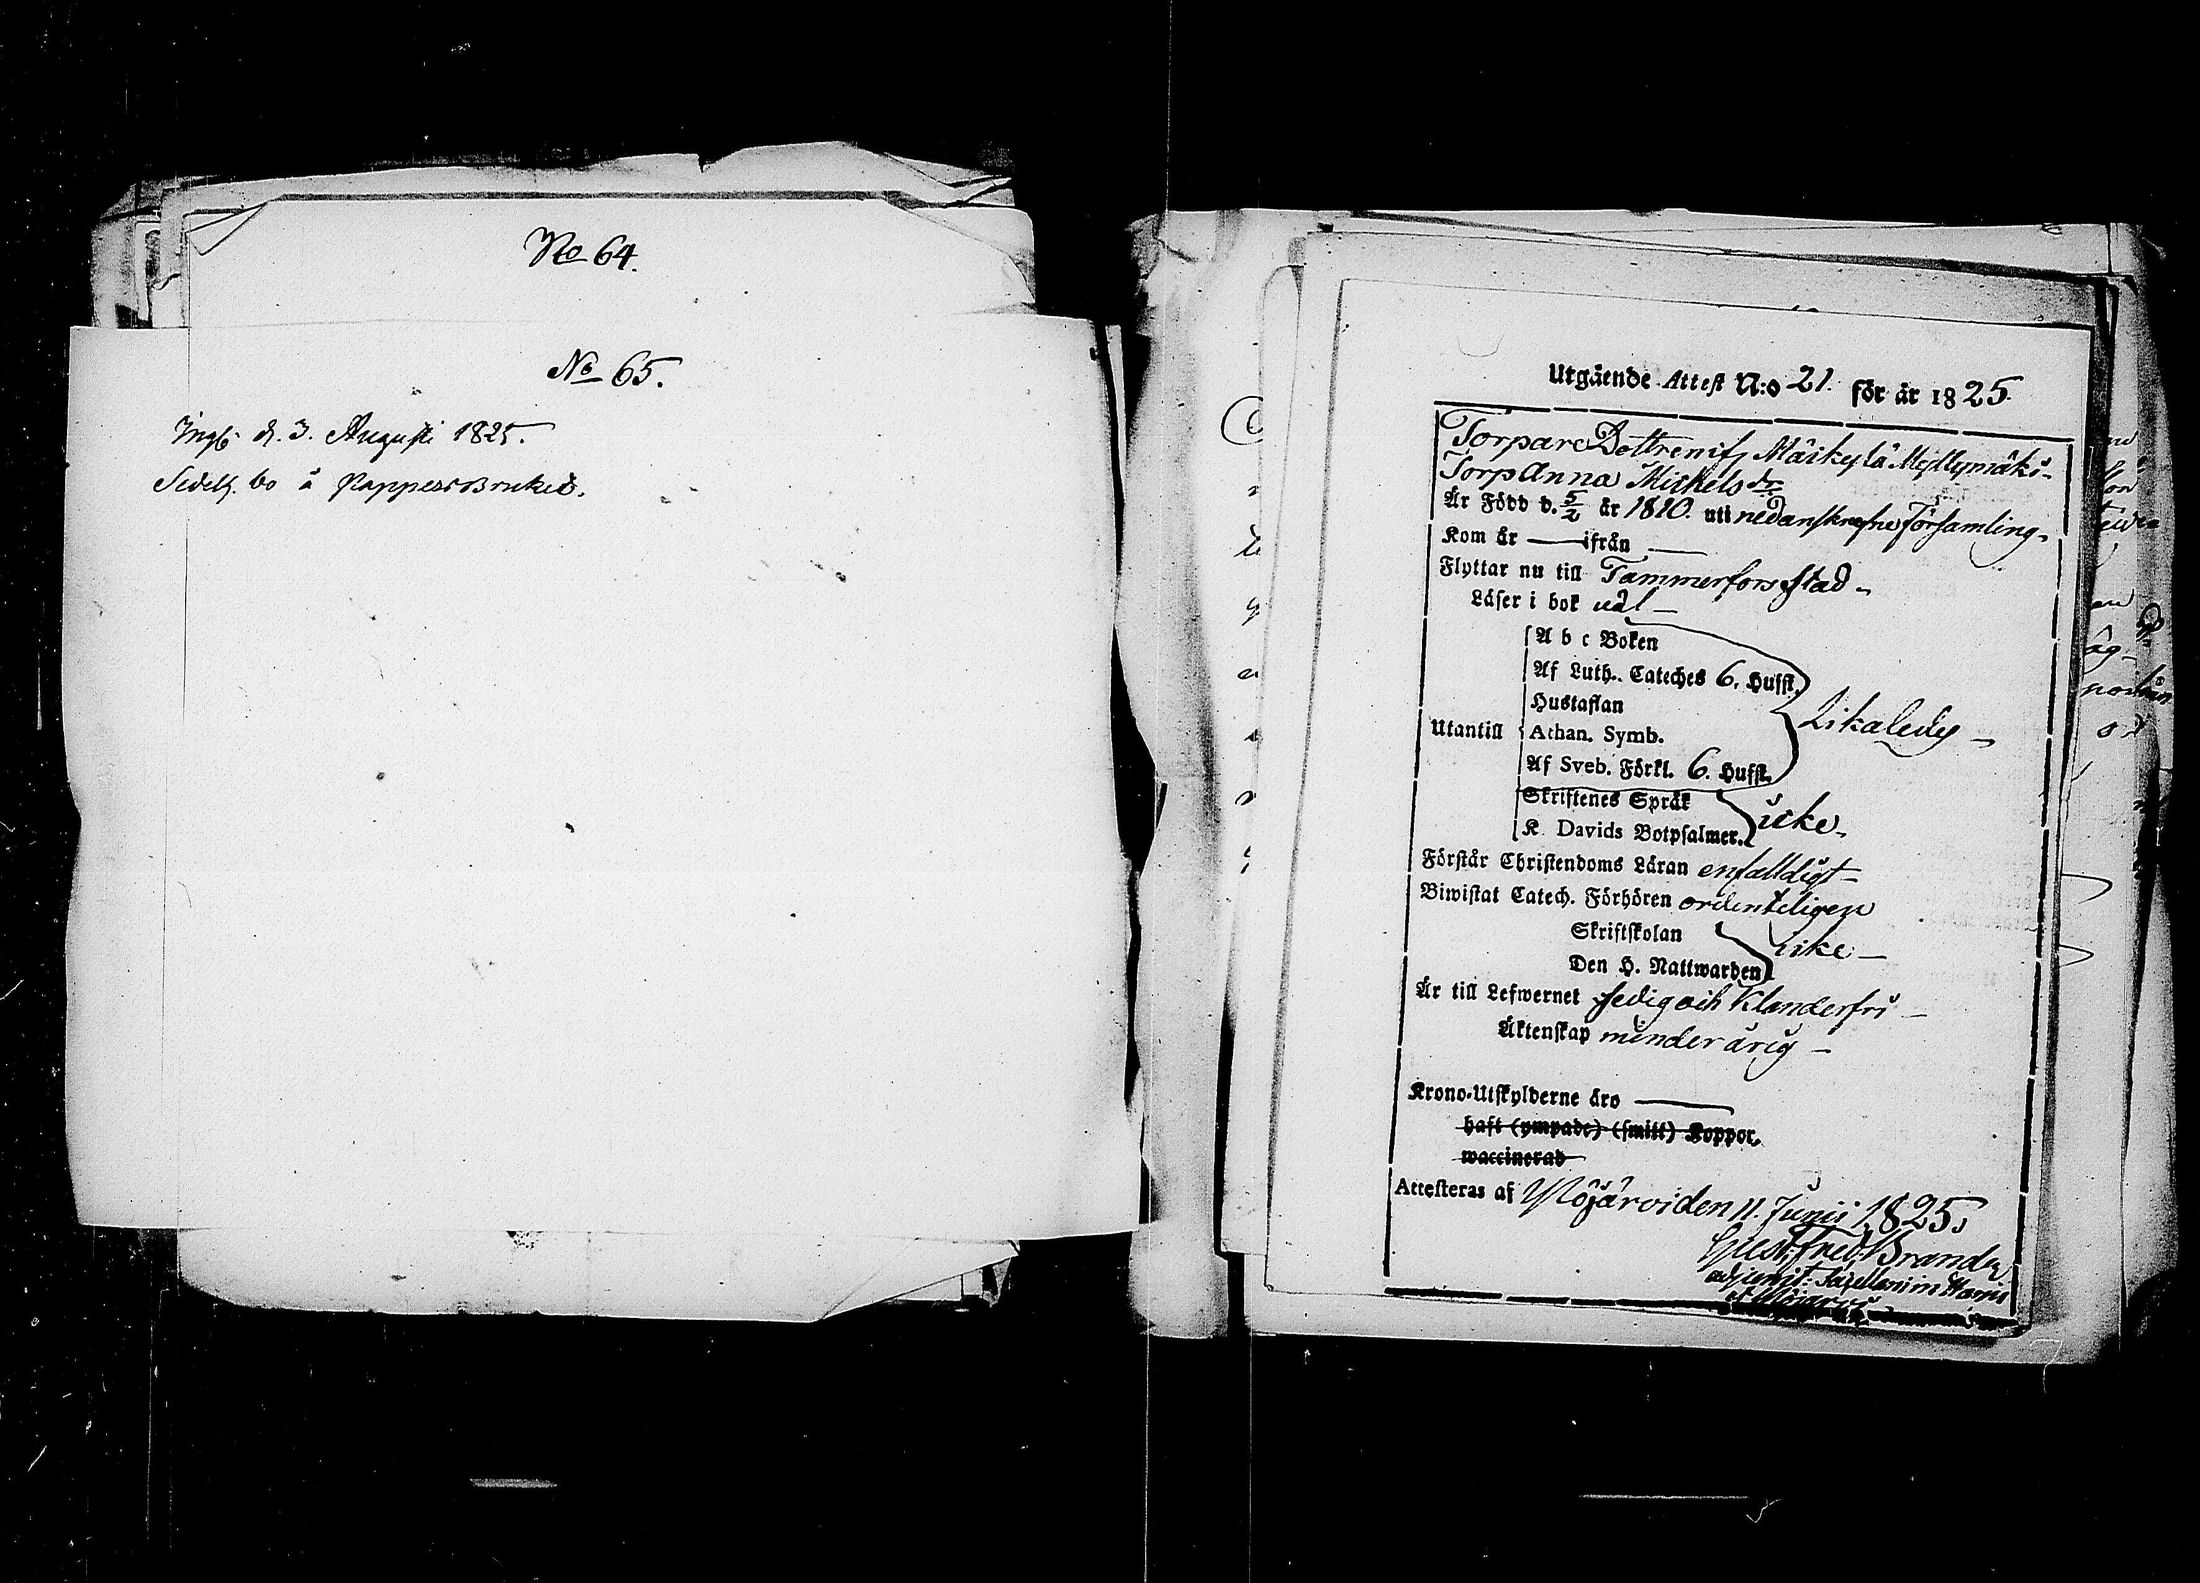 No 64.
No 65.
Ingb. d. 3. Augusti 1825.
bo å PappersBruket.
Utgäende Attest N:o 21. för år 1825.
Torpare Dottren if
Torp Anna Mickels dr.
Är Född d. 5/2 år 1810. uti nedanskrefne Församling.
Kom år — ifrån —
Flyttar nu till Tammerfors Stad.
Läser i bok väl
A b c Boken
Af Luth. Cateches 6. Hufst.
Hustaflan
Utantill Athan. Symb. Likaledes
Af Sveb. Förkl. 6. Hufst.
Skriftenes Språk
K. Davids Botpsalmer. icke.
Förstår Christendoms Läran enfalldigt
Biwistat Catech. Förhören ordenteligen
Skriftskolan
Den H. Nattwarden icke
Är till Lefwernet sedig och Klanderfri
Äktenskap minderårig
Krono-Utskylderne äro —
haft (ympade) (smitt) Koppor.
waccinerad
Attesteras af Ylöjärvi den 11. Junii 1825.
Fred. Brander